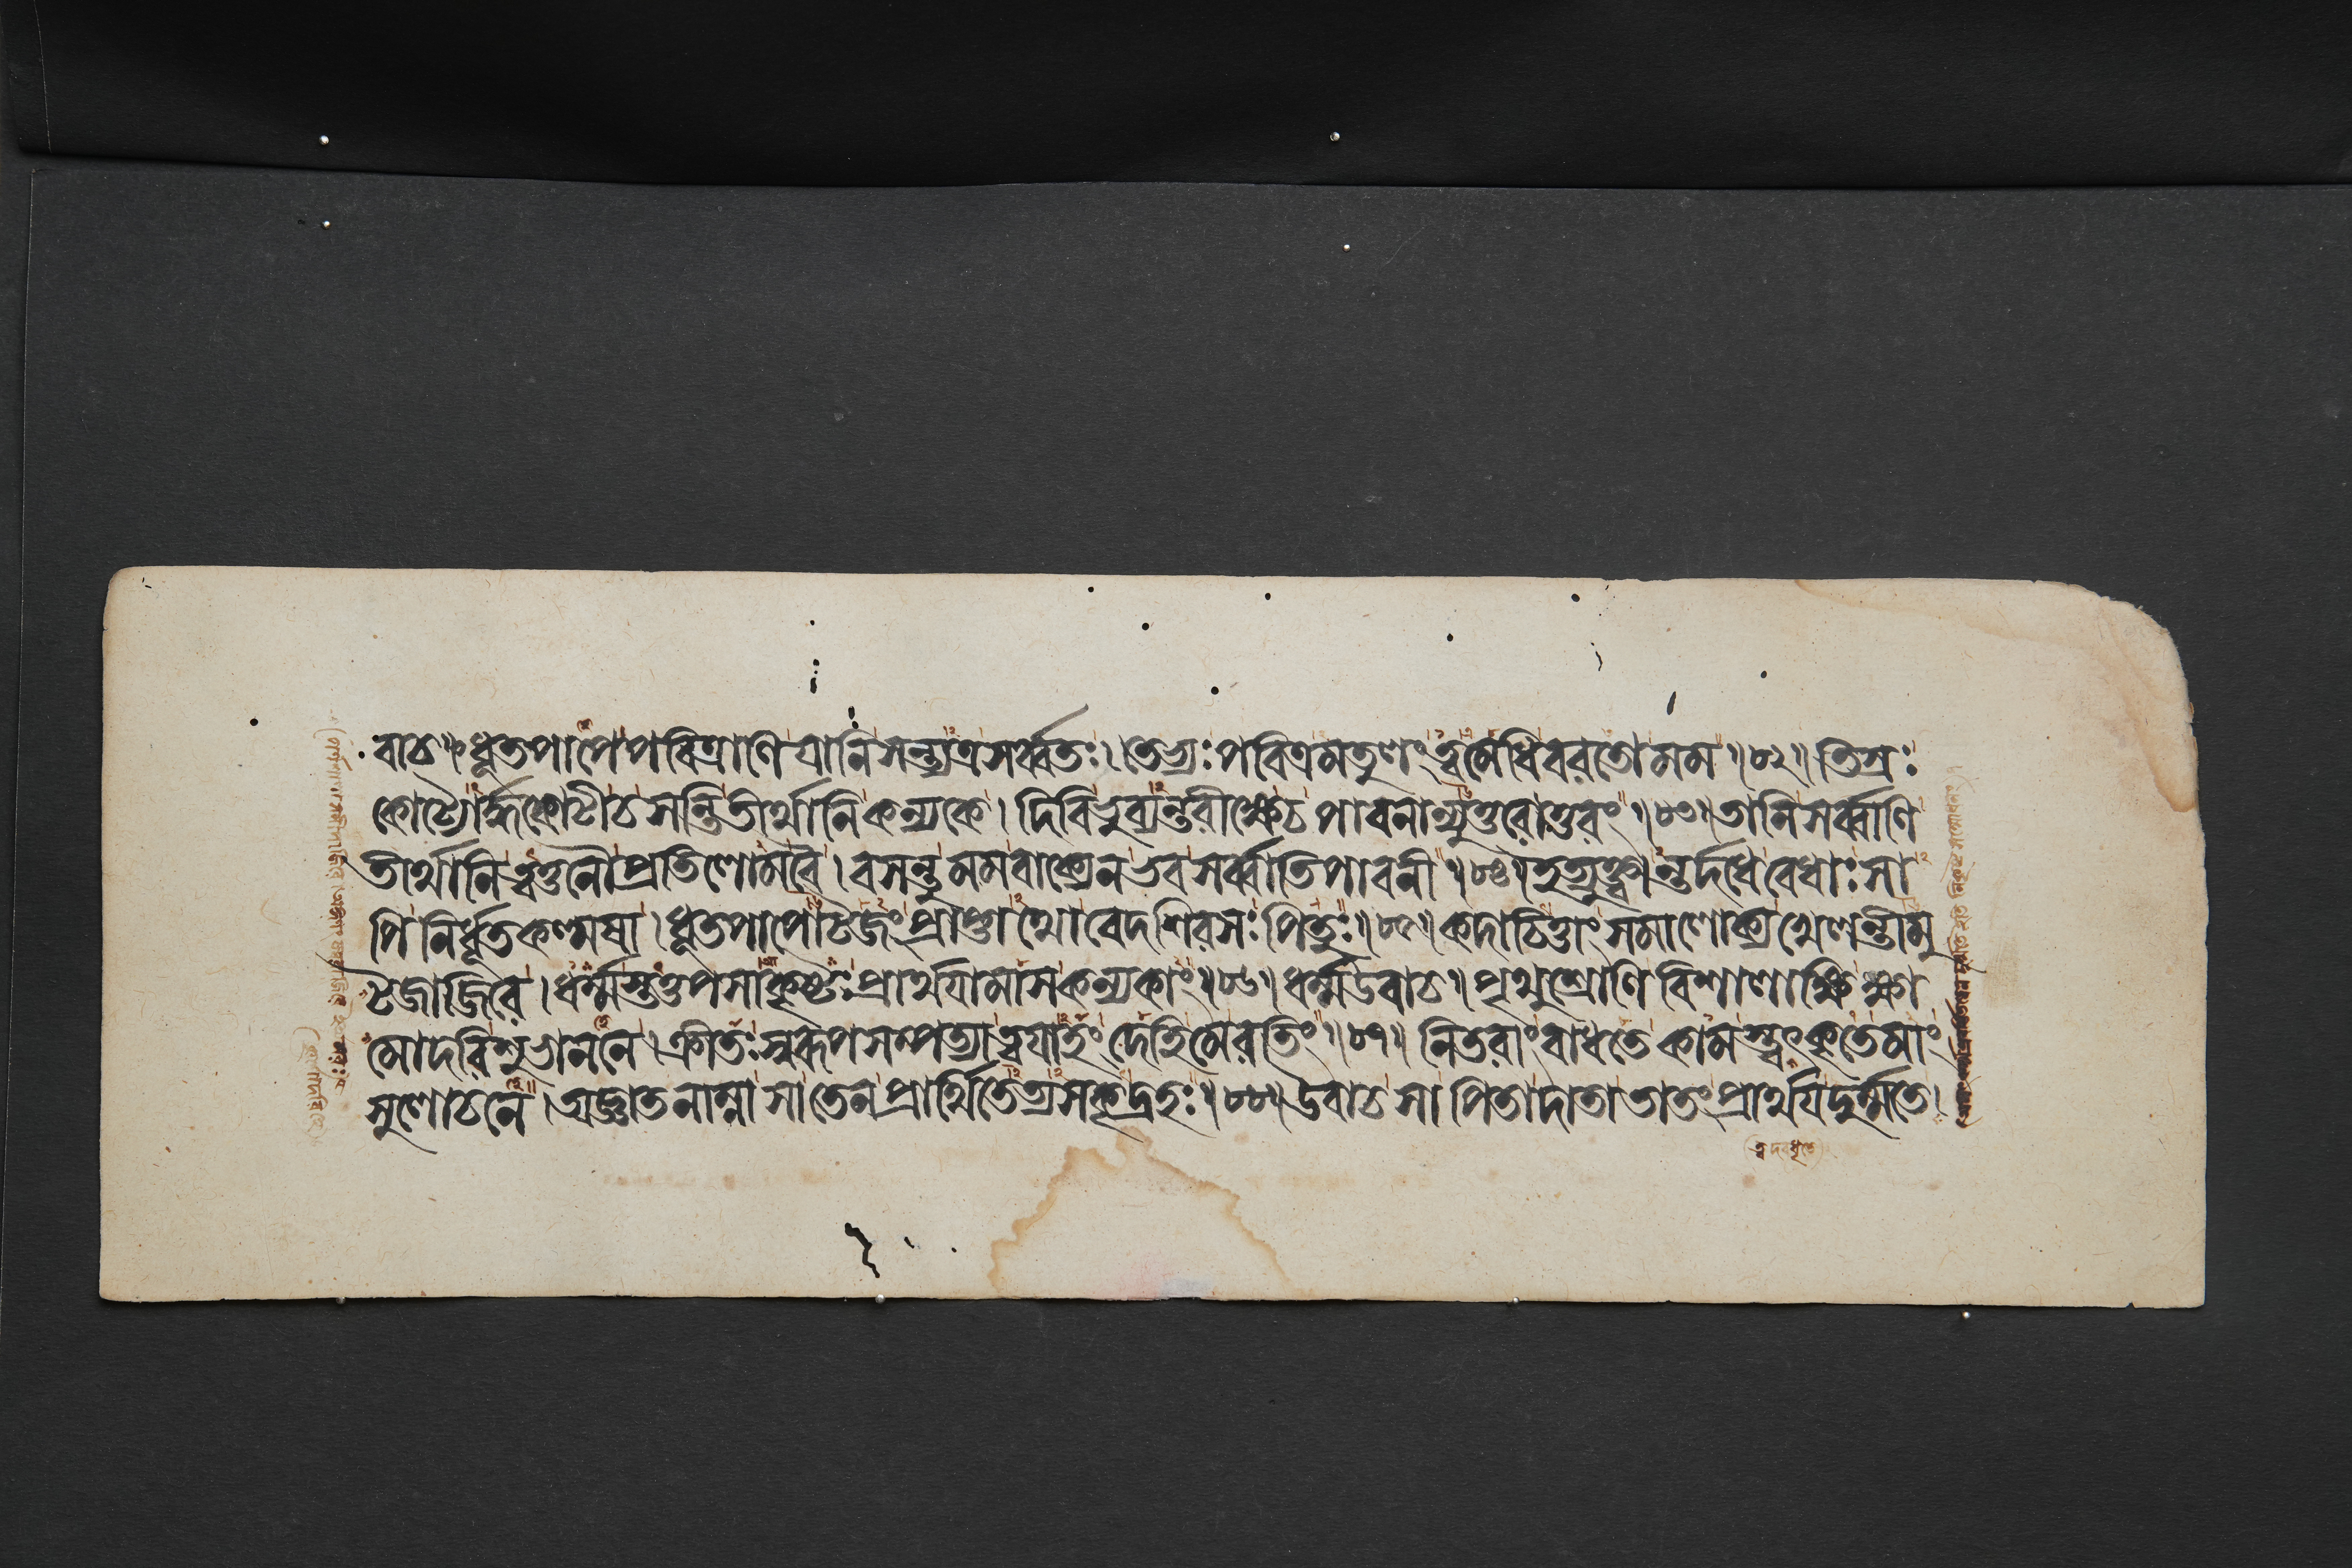 বাচ॥ ধূতপাপে পবিত্রাণি যানি সন্ত্যত্র সর্ব্বতঃ। তেভ্যঃ পবিত্রমতুলং ত্বমেধি বরতো মম॥৮২॥ তিস্রঃ
কোট্যোর্দ্ধকোটী চ সন্তি তীর্থানি কন্যকে। দিবি ভুব্যন্তরীক্ষে চ পাবনান্যুত্তরোত্তরং॥৮৩॥ তানি সর্ব্বাণি
তীর্থানি ত্বত্তনৌ প্রতিলোম বৈ। বসন্তু মম বাক্যেন ভব সর্ব্বাতিপাবনী॥৮৪॥ ইত্যুক্ত্বান্তর্দধে বেধাঃ সা
পি নির্ধূতকল্মষা। ধূতপাপোটজং প্রাপ্তাথো বেদশিরসঃ পিতুঃ॥৮৫॥ কদাচিত্তাং সমালোক্য খেলন্তীমু
টজাজিরে। ধর্ম্মস্তত্তপসাকৃষ্টঃ প্রার্থয়ামাস কন্যকাং॥৮৬॥ ধর্ম্ম উবাচ॥ পৃথুশ্রোণি বিশালাক্ষি ক্ষা
মোদরি শুভাননে। ক্রীতঃ স্বরূপসম্পত্যা ত্বয়াহং দেহি মে রতিং॥৮৭॥ নিতরাং বাধতে কামস্ত্বৎকৃতে মাং
সুলোচনে। অজ্ঞাতনাম্না সা তেন প্রার্থিতেত্যসকৃদ্রহঃ॥৮৮॥ উবাচ সা পিতা দাতা তাতং প্রার্থয় দুর্ম্মতে।